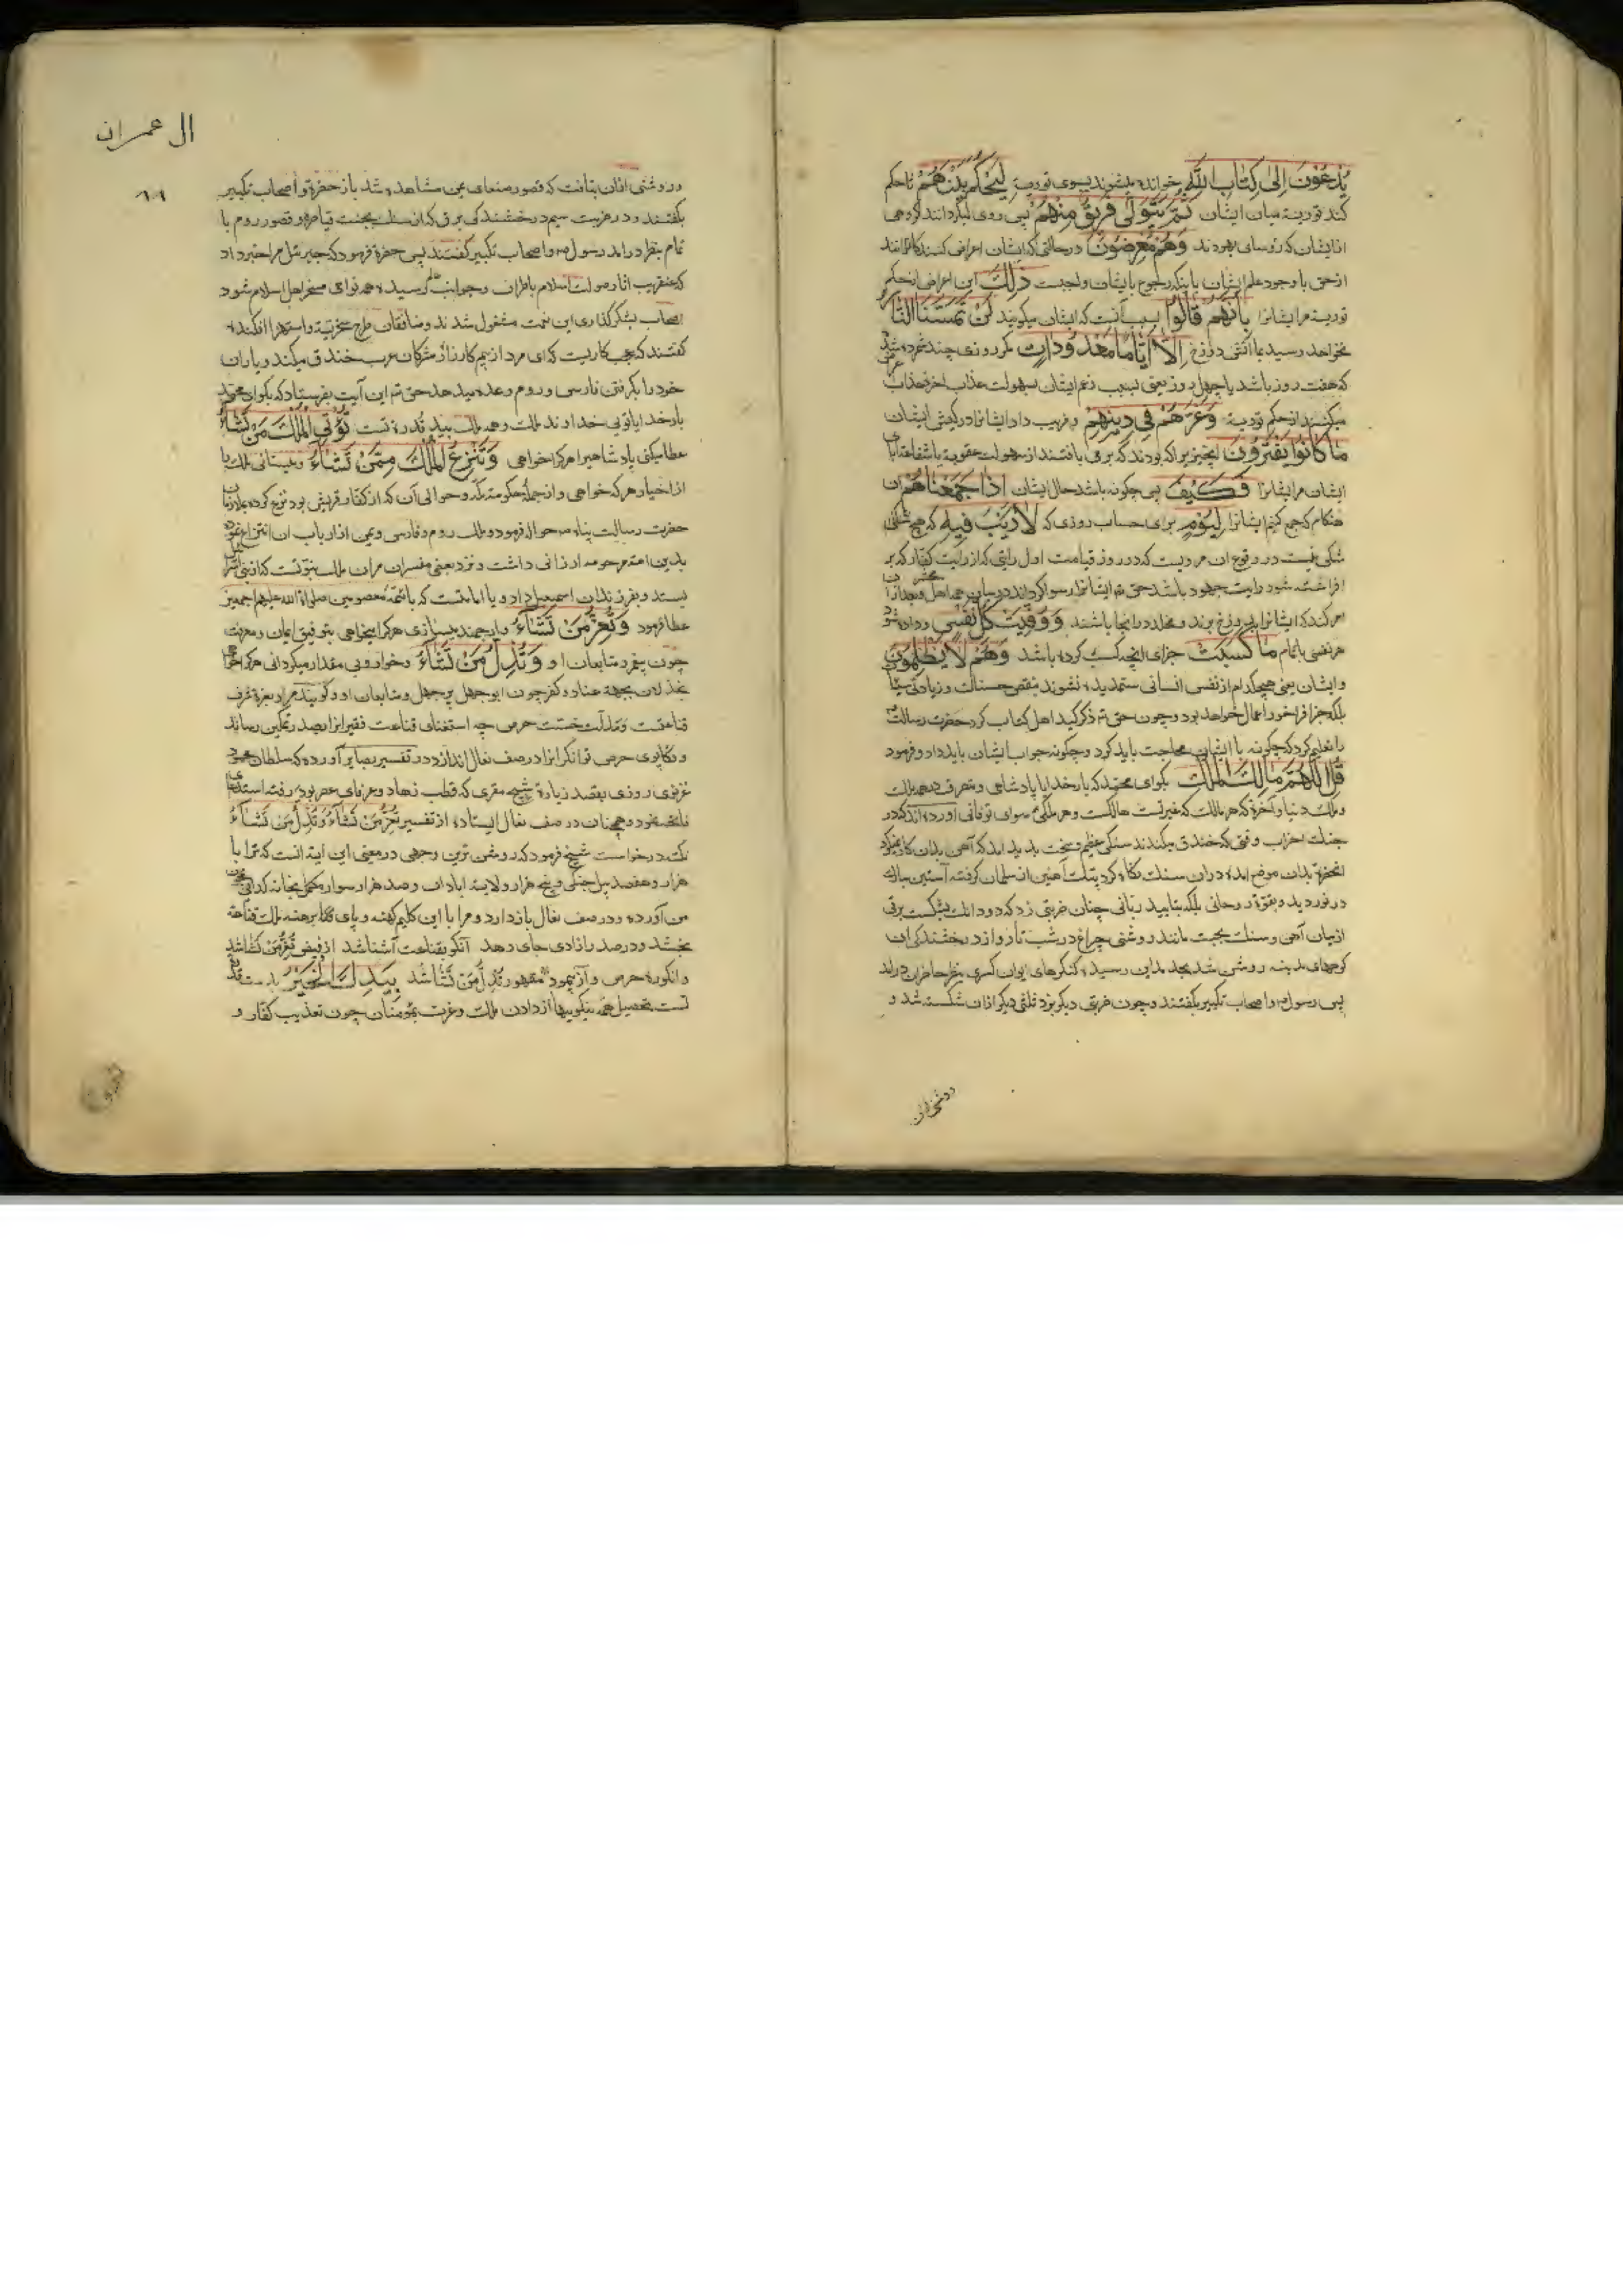 يُدْعَوْنَ إِلىٰ كِتَابِ اللَّهِ خوانده میشوند بسوی توریة لِيَحْكُمَ بَيْنَهُمْ تا حکم
کند توریة میان ایشان ثُمَّ يَتَوَلَّى فَرِيقٌ مِنْهُمْ پس روی میگردانند گروهی
از ایشان که رؤسای یهودند وَهُمْ مُعْرِضُونَ درحالتی که ایشان اعراض کنندکانند
ازحق با وجود علم ایشان بانکه رجوع بایشان واجبست ذٰلِكَ این اعراض از حکم
توریة مر ایشانرا بِأَنَّهُمْ قَالُوا بسبب آنست که ایشان میکویند لَنْ تَمَسَّنَا النَّارُ
نخواهد رسید بما آتش دوزخ إِلَّا أَيَّامًا مَعْدُودَاتٍ مکر روزی چند شمرده شده
که هفت روز باشد یا چهل روز یعنی بسبب زعم ایشان بسهولت عذاب اخرة
میکنند از حکم توریة وَغَرَّهُمْ فِي دِينِهِمْ و فریب داد ایشانرا در کیش ایشان
مَا كَانُوا يَفْتَرُونَ انچیزیرا که بودند که برمی بافتند از سهولت عقوبة یا شفاعة ابای
ایشان مر ایشانرا فَكَيْفَ پس چکونه باشد حال ایشان إِذَا جَمَعْنَاهُمْ ان
هنکام که جمع کنیم ایشانرا لِيَوْمٍ برای حساب روزی که لَا رَيْبَ فِيهِ که هیچ شکی
شکی نیست در وقوع ان مرویست که در روز قیامت اول رایتی که از رایت کفار که بر
افراخته شود رایت جهود باشد حق تم ایشانرا رسوا کرداند در میان همه اهل محشر و بعد از ان
امر کند که ایشانرا بدوزخ برند و مخلد در انجا باشند وَوُفِّيَتْ كُلُّ نَفْسٍ و داده شود
هر نفسی بتمام مَا كَسَبَتْ جزای انچه کسب کرده باشد وَهُمْ لَا يُظْلَمُونَ
و ایشان یعنی هیچکدام از نفس انسانی ستمدیده نشوند بنقص حسنات و زیادتی سیئات
بلکه جزا فراخور اعمال خواهد بود و چون حق تم ذکر کید اهل کتاب کرد حضرت رسالت
را تعلیم کرد که چکونه با ایشان محاجت باید کرد و چکونه جواب ایشان باید داد و فرمود
قُلِ اللَّهُمَّ مَالِكَ الْمُلْكِ بکو ای محمد که بار خدایا پادشاهی و متصرف در همه ملک
و ملک دنیا و آخرة که هر مالک که غیر تست هالکست و هر ملکی سوای تو فانی آورده اند که در
جنک احزاب وقتی که خندق میکندند سنکی عظیم و سخت بدید امد که آهن بدان کار نمیکرد
انحضرة بدان موضع امده دران سنک نکاه کرد پتک آهنین از سلمان کرفته آستین مبارک
درنوردید و بقوة روحانی بلکه بتایید ربانی چنان ضربتی زد که دو دانک بشکست برقی
ازمیان آهن و سنک بجست مانند روشنی چراغ در شب تار و از درخشندکی ان
کوههای مدینه روشن شد بحد مداین رسیده کنکرهای ایوان کسری بنظر حاضران درامد
پس رسول ص و اصحاب تکبیر بکفتند و چون ضربتی دیکر بزد ثلثی دیکر ازان شکسته شد و
روشنی ازان
ال عمران
وروشنی ازان بتافت که قصور صنعای یمن مشاهده شد باز حضرة و اصحاب تکبیر
بکفتند و در ضربت سیم درخشندکی برق کزان سنک بجست قیاصره و قصور روم با
تمام بنظر درامد رسول ص و اصحاب تکبیر کفتند پس حضرة فرمود که جبرئیل مرا خبر داد
که عنقریب اثار صولت اسلام باطراف و جوانب رسیده همه نوای مسخر اهل اسلام شود
اصحاب بشکرکذاری این نعمت مشغول شدند و منافقان طرح سخریة و استهزا افکنده
کفتند که عجب کاریست که ای مرد از بیم کارزار مشرکان عرب خندق میکند و یاران
خود را بکرفتن فارس و روم وعده میدهد حق تم این آیت بفرستاد که بکو ای محمد
بار خدایا تویی خداوند ملک و همه ملک بید قدرة تست تُؤْتِي الْمُلْكَ مَنْ تَشَاءُ
عطا میکنی پادشاهیرا هر کرا خواهی وَتَنْزِعُ الْمُلْكَ مِمَّنْ تَشَاءُ و میستانی ملک را
از اختیار هر که خواهی و ازجمله حکومة مکه و حوالی آن که از کفار قریش بود نزع کرده بملازمان
حضرت رسالت پناه ص حواله فرمود و ملک روم و فارس و یمن از ارباب ان انتزاع نموده
بدین امة مرحومه ارزانی داشت و نزد بعضی مفسران مراد ملک نبوتست که از بنی اسرائیل
بستد و بفرزندان اسمعیل داد و یا امامتست که بائمه معصومین صلواة الله علیهم اجمعین
عطا فرمود وَتُعِزُّ مَنْ تَشَاءُ و ارجمند میسازی هر کرا میخواهی بتوفیق ایمان و معرفت
چون پیغمبر و متابعان او وَتُذِلُّ مَنْ تَشَاءُ و خوار و بی مقدار میکردانی هر کرا خواهی
بخذلان بجهة عناد و کفر چون ابوجهل پرجهل و متابعان او و کویند مراد بعزة شرف
قناعتست و مذلت خست حرص چه استغنای قناعت فقیرانرا بصدر تمکین رساند
و تکاپوی حرص توانکرانرا در صف نعال اندازد در تفسیر بصایر آورده که سلطان محمود
غزنوی روزی بقصد زیارة شیخ مقری که قطب زهاد و عرفای عصر بود رفته استدعای
فاتحه نمود و همچنان در صف نعال ایستاده از تفسیر تُعِزُّ مَنْ تَشَاءُ وَتُذِلُّ مَنْ تَشَاءُ
نکته درخواست شیخ فرمود که روشن ترین وجهی در معنی این آیة انست که ترا با
هزار و هفصد پیل جنکی و پنج هزار ولایة ابادان و صد هزار سوار مکمل بخانه کدایی چون
من آورده و در صف نعال بازدارد و مرا با این کلیم کهنه و پای برهنه ملک قناعة
بخشد و در صدر آزادی جای دهد آنکو بقناعت آشنا شد از فیض تُعِزُّ مَنْ تَشَا شد
وانکو ره حرص و آز پیمود مقهور تُذِلُّ مَنْ تَشَا شد بِيَدِكَ الْخَيْرُ بدست قدرة
تست تحصیل همه نیکوییها از دادن ملک و عزت بمؤمنان چون تعذیب کفار و